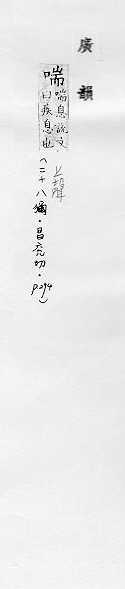 廣韻
喘喘息說文曰疾息也。上聲
(二十八獮·昌兗切·P294)